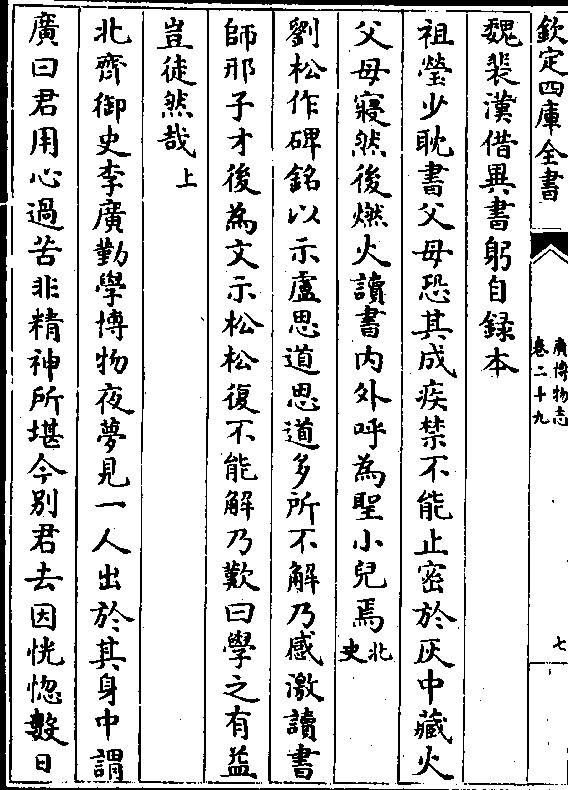 欽定四庫全書
廣博物志
卷二十九
七
魏裴漢借異書躬自録本
祖瑩少耽書父母恐其成疾禁不能止密於灰中藏火
父母寢然後燃火讀書内外呼為聖小兒焉北史
劉松作碑銘以示盧思道思道多所不解乃感激讀書
師邢子才後為文示松松復不能解乃歎曰學之有益
豈徒然哉上
北齊御史李廣勤學博物夜夢見一人出於其身中謂
廣曰君用心過苦非精神所堪今別君去因恍惚數日